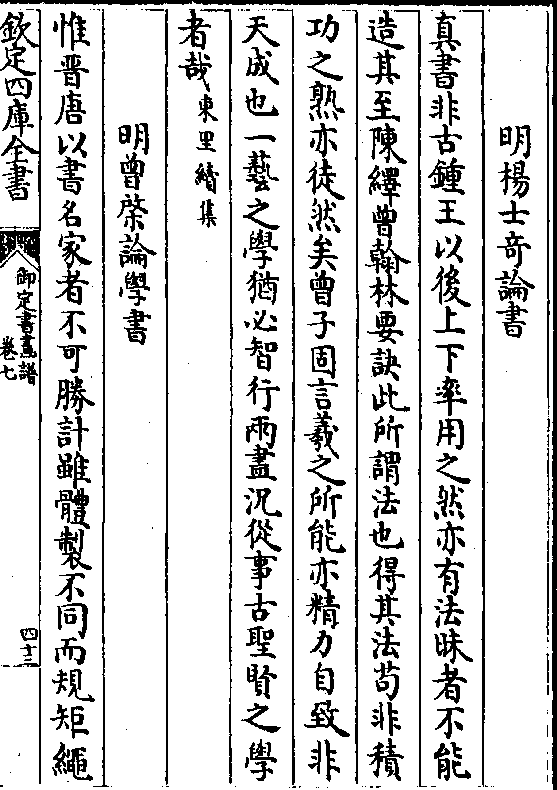 明楊士奇論書
真書非古鍾王以後上下率用之然亦有法昧者不能
造其至陳繹曾翰林要訣此所謂法也得其法苟非積
功之熟亦徒然矣曾子固言羲之所能亦精力自致非
天成也一藝之學猶必智行兩盡況從事古聖賢之學
者哉東里續集
明曾棨論學書
惟晋唐以書名家者不可勝計雖體製不同而規矩繩
欽定四庫全書
御定書畫譜
卷七
四十三